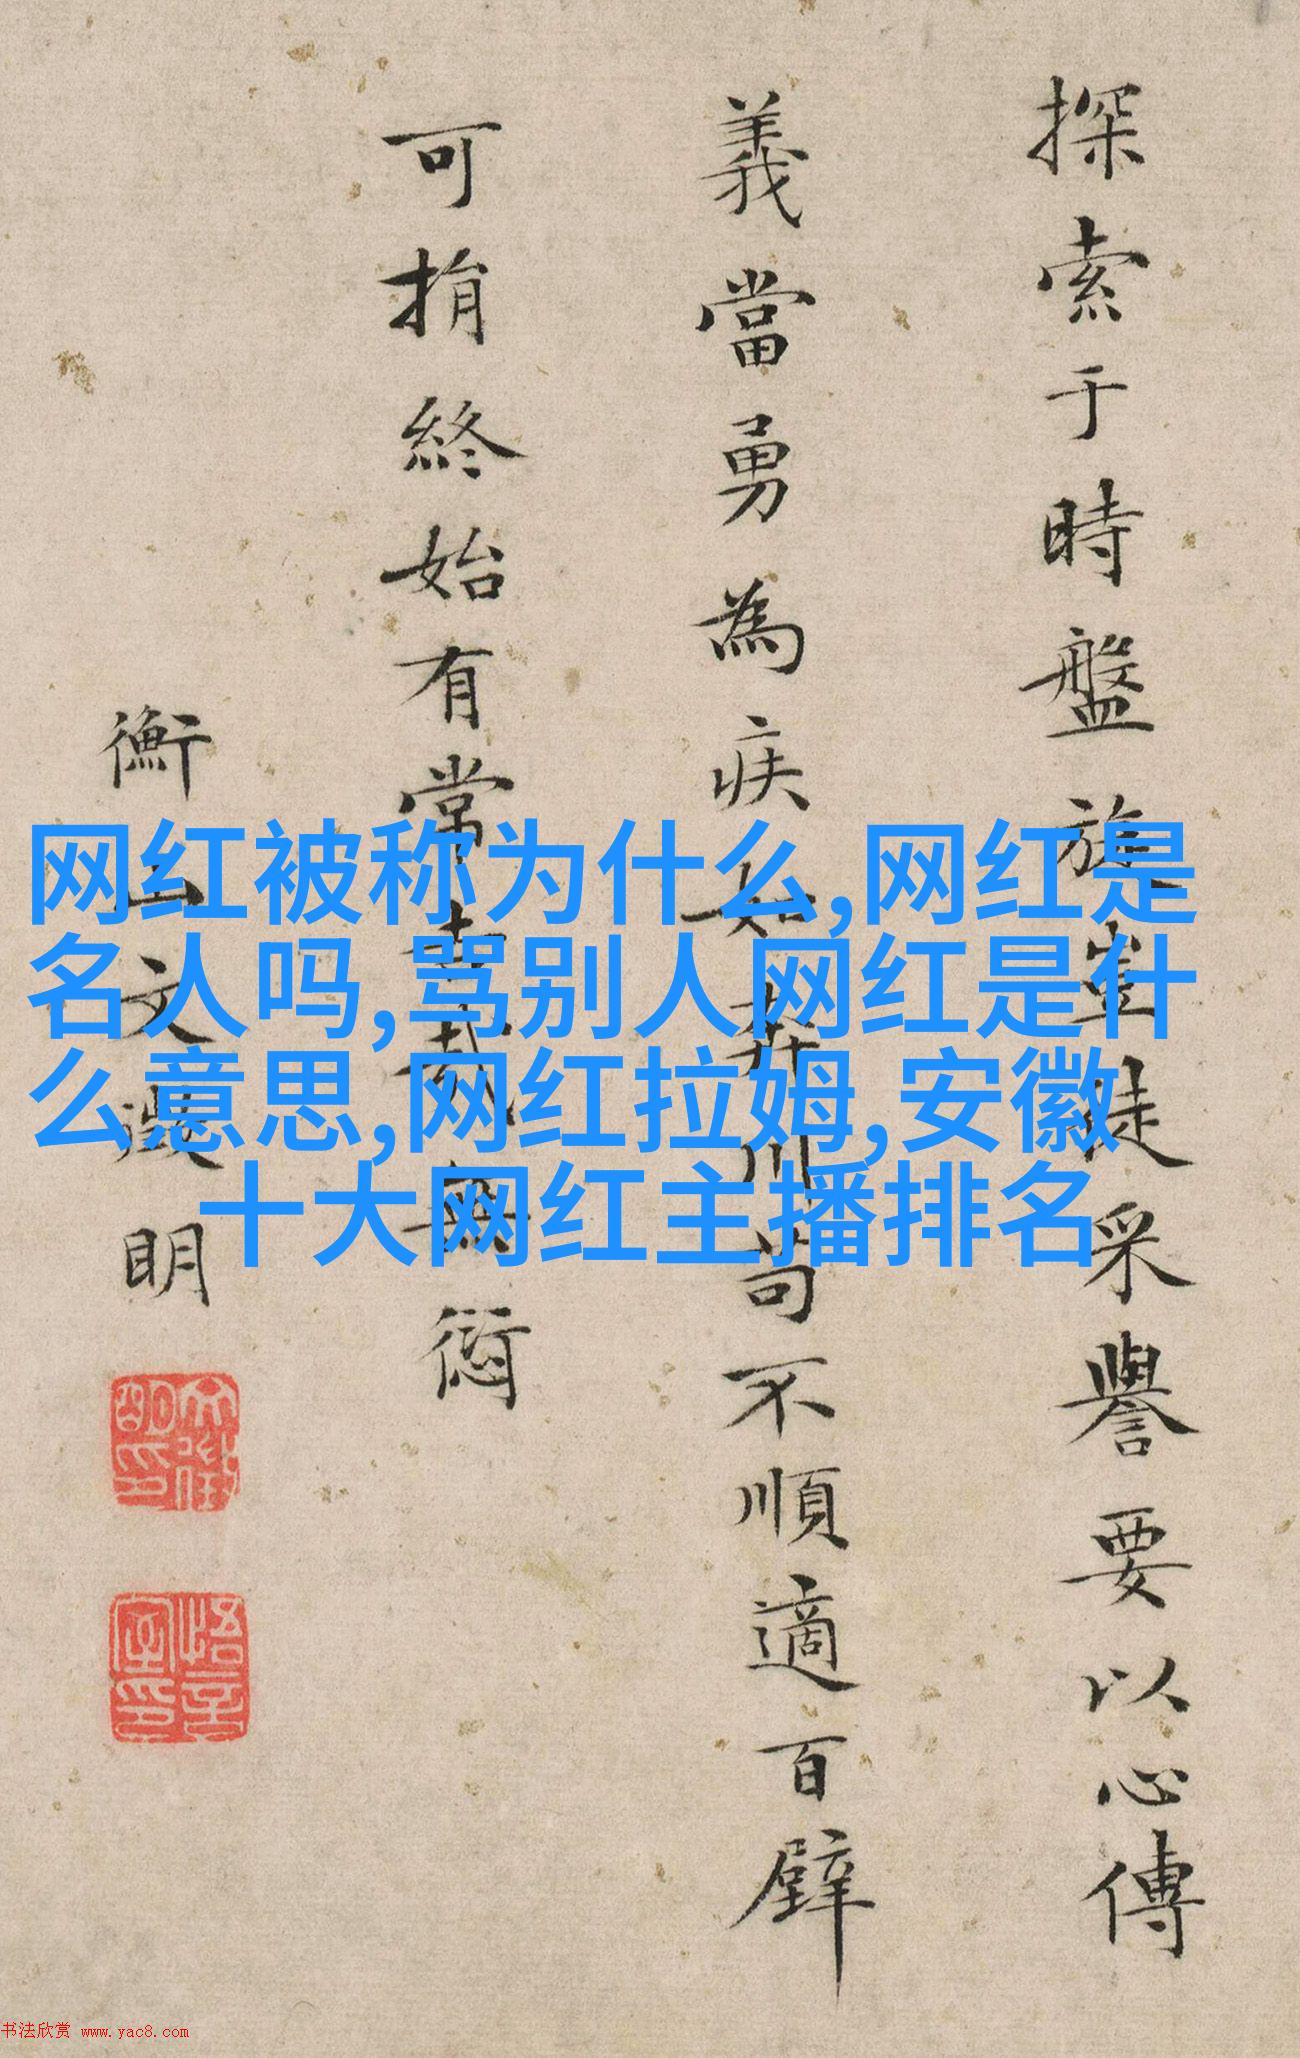 探索于時盤旋豈徒采譽要以心傳
義當勇為疾如奔川苟不順適百
可捐終始有常吉哉無愆
衡山文徵明
网红被称为什么,网红是
名人吗,骂别人网红是什
么意思,网红拉姆,安徽
十大网红主播排名
书法欣赏 www.yac8.com